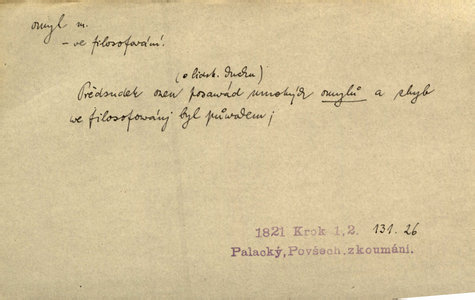 omyl m.
- ve filosofování.
(o lidsk. duchu)
Předsudek onen posawád mnohých omylů a chyb
we filosofowánj byl půwodem;
1821 Krok 1,2. 131.26
Palacký, Povšech. zkoumání.